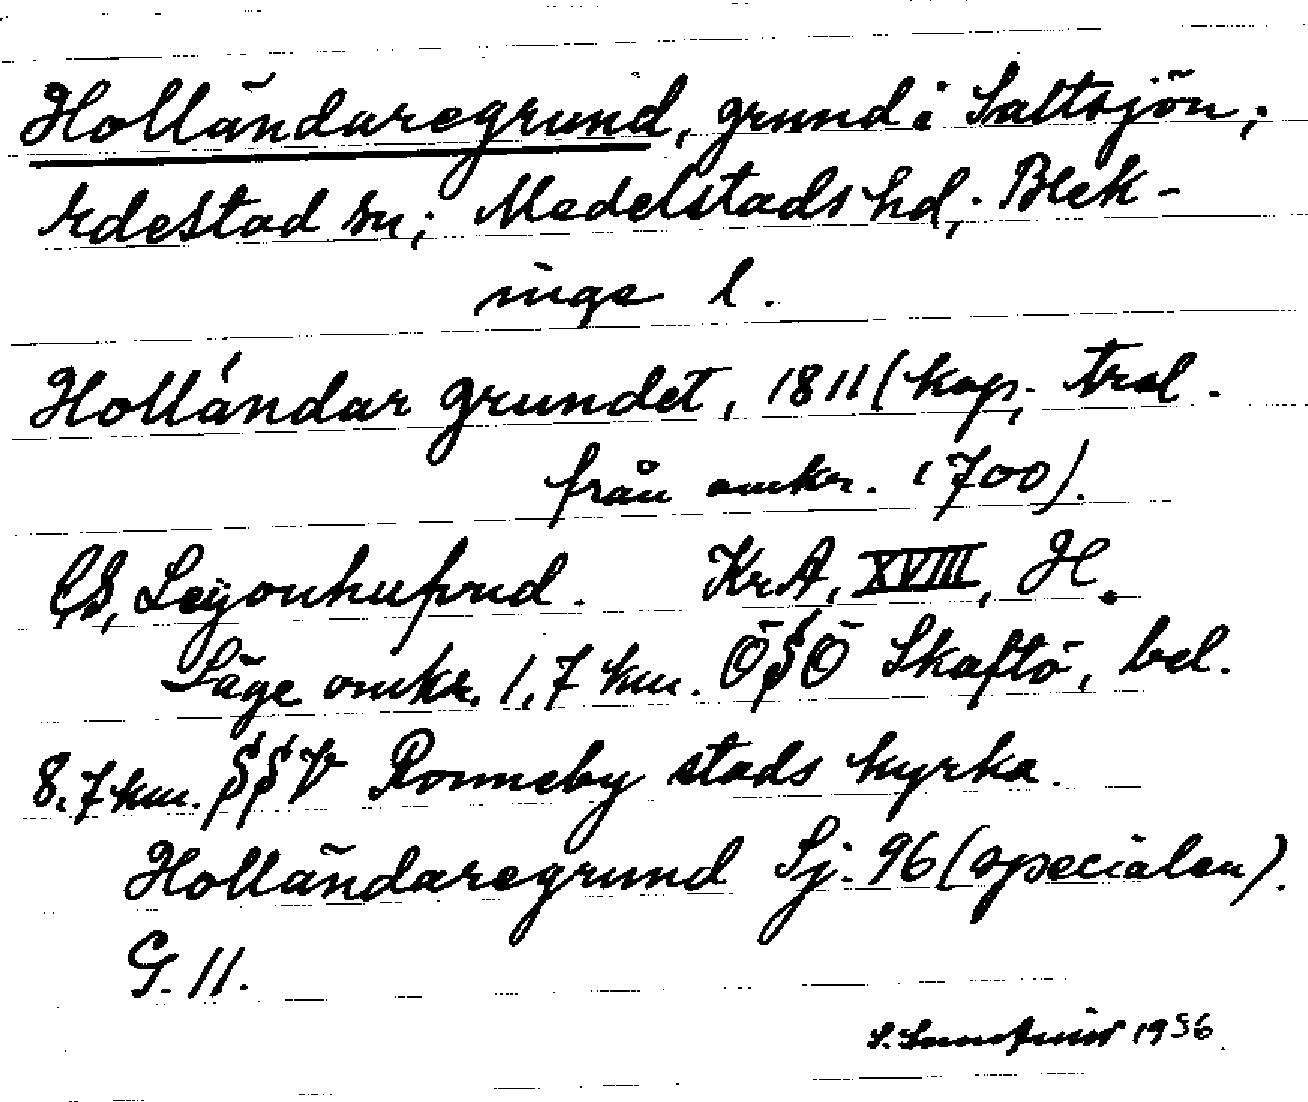 Holländaregrund, grund i Saltsjön;
Edestad sn; Medelstads hd; Blek-
inge l.
Holländar grundet, 1811 (kop, trol.
från omkr. 1700).
CS, Leijonhufvud. KrA, XVIII, H.
Läge omkr. 1,7 km. ÖSÖ Skaftö, bel.
8.7 km. SSV Ronneby stads kyrka.
Holländaregrund Sj. 96 (specialen).
G. 11.
S. 1956